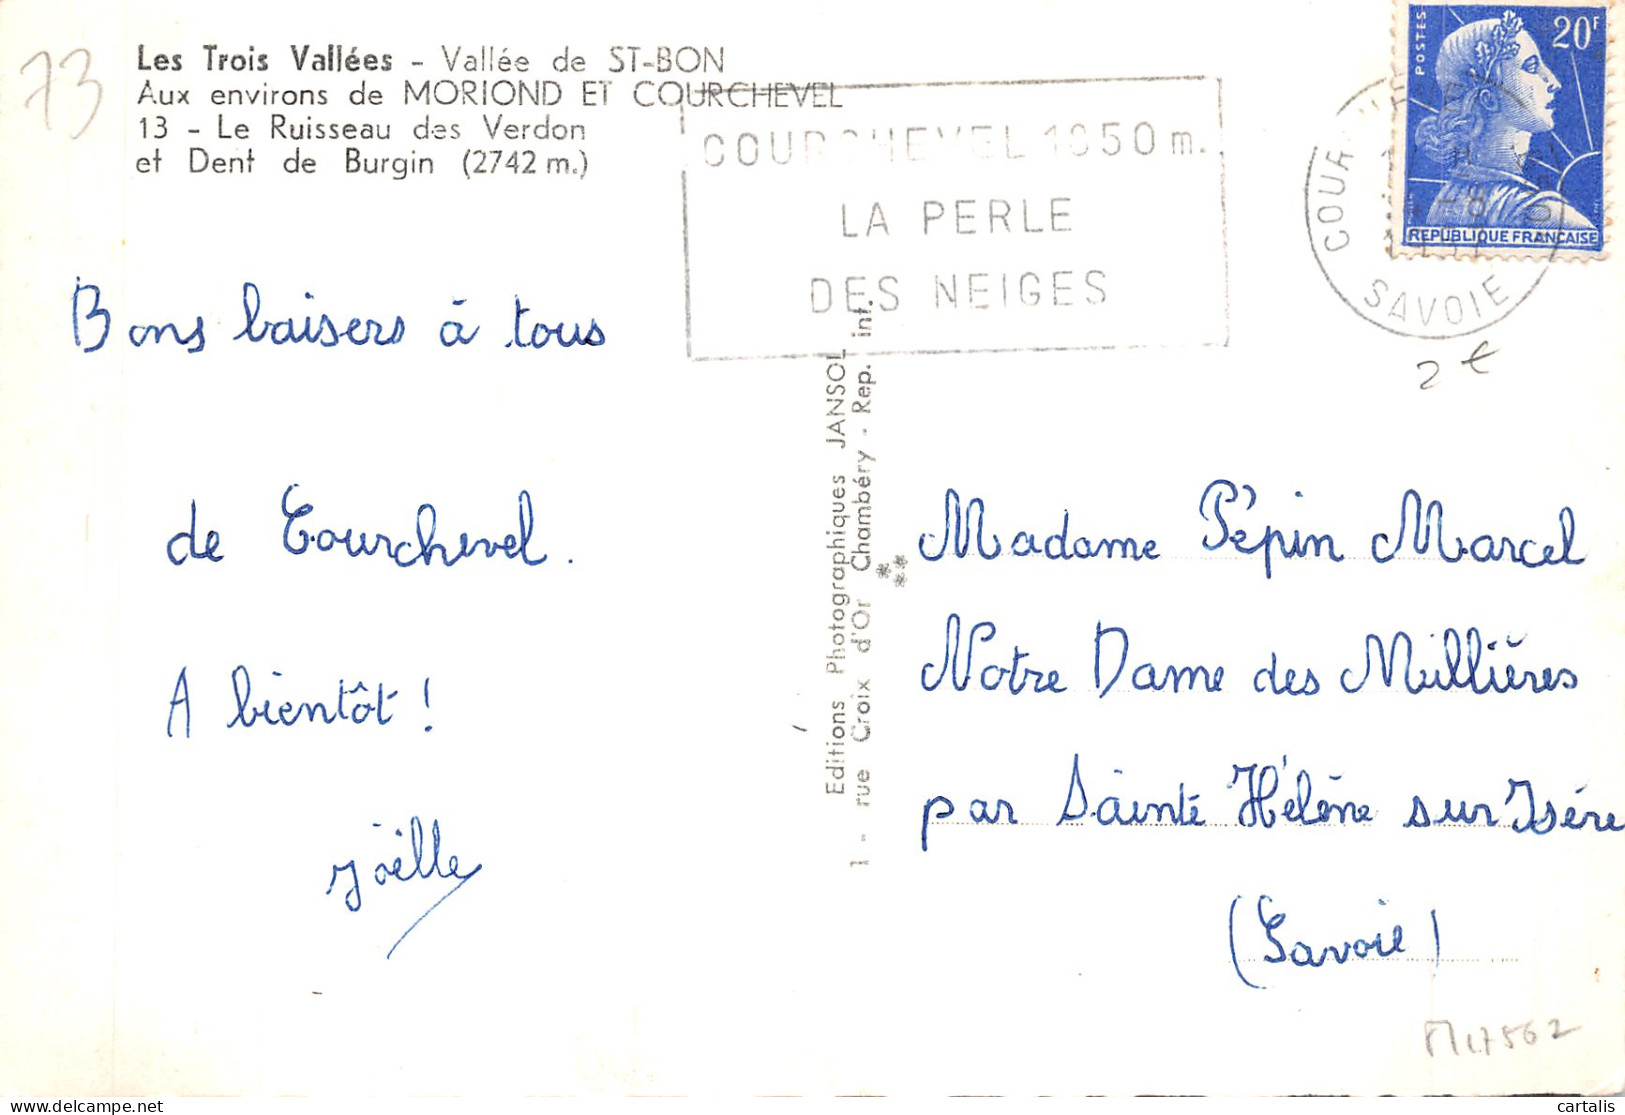 73
Les Trois Vallées - Vallée de ST-BON
Aux environs de MORIOND ET COURCHEVEL
13 - Le Ruisseau des Verdon
et Dent de Burgin (2742 m.)
COURCHEVEL 1850 m.
LA PERLE
DES NEIGES
POSTES
20F
REPUBLIQUE FRANÇAISE
SAVOIE
2 €
Bons baisers à tous
de Courchevel.
A bientôt !
Joëlle
Editions Photographiques JANSOL
1 - rue Croix d'Or Chambéry - Rep. int.
Madame Pépin Marcel
Notre Dame des Millières
par Sainte Hélène sur Isère
(Savoie)
17562
cartalis